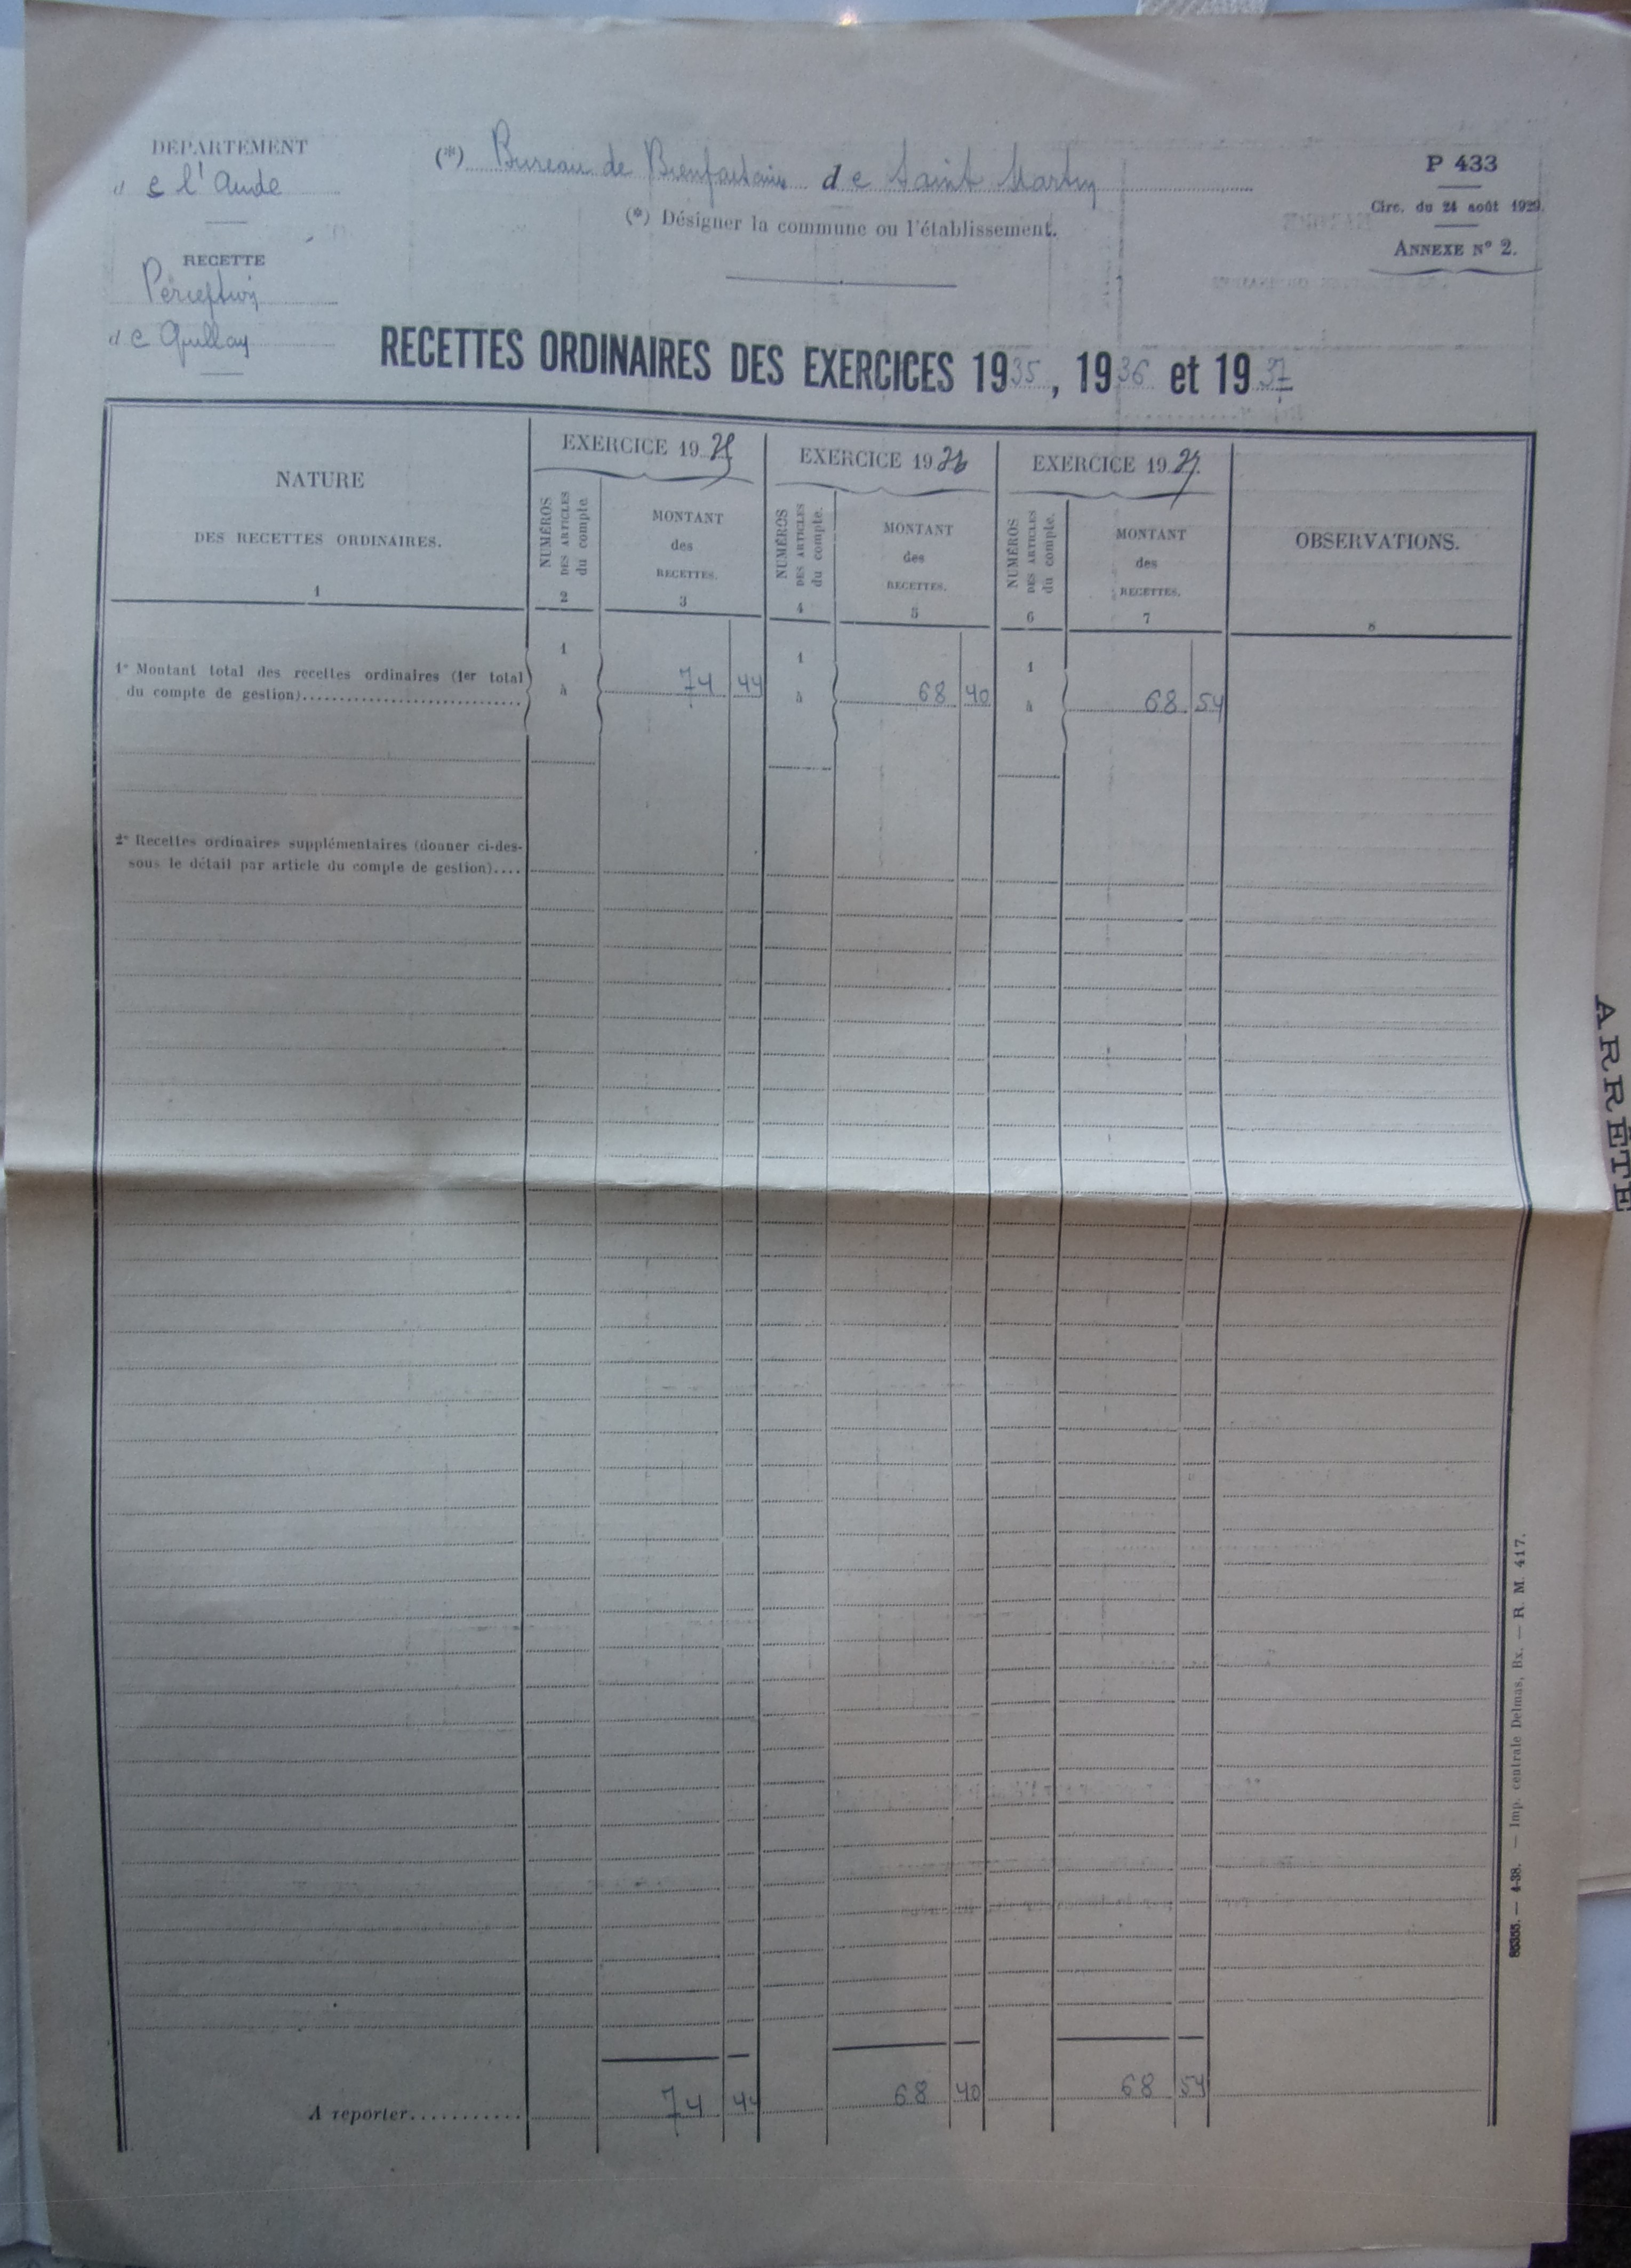 DÉPARTEMENT
de l'Aude
(*) Bureau de Bienfaisance de Saint Martin
(*) Désigner la commune ou l'établissement.
P 433
Circ. du 24 août 1929.
ANNEXE N° 2.
RECETTE
Perception
de
RECETTES ORDINAIRES DES EXERCICES 1935, 1936 et 1937
NATURE
DES RECETTES ORDINAIRES.
1
EXERCICE 19
NUMÉROS
DES ARTICLES
du compte.
2
MONTANT
des
RECETTES.
3
EXERCICE 19
NUMÉROS
DES ARTICLES
du compte.
4
MONTANT
des
RECETTES.
5
EXERCICE 19
NUMÉROS
DES ARTICLES
du compte.
6
MONTANT
des
RECETTES.
7
OBSERVATIONS.
8
1° Montant total des recettes ordinaires (1er total
du compte de gestion)
1
à
74 44
1
à
68 40
1
à
68 54
2° Recettes ordinaires supplémentaires (donner ci-des-
sous le détail par article du compte de gestion)....
A reporter........... 74 44 68 40 68 54
4-38. — Imp. centrale Delmas, Bx. — R. M. 417.
ARRÊTE